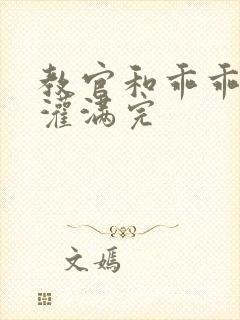 教官和乖乖
灌满完
文嫣